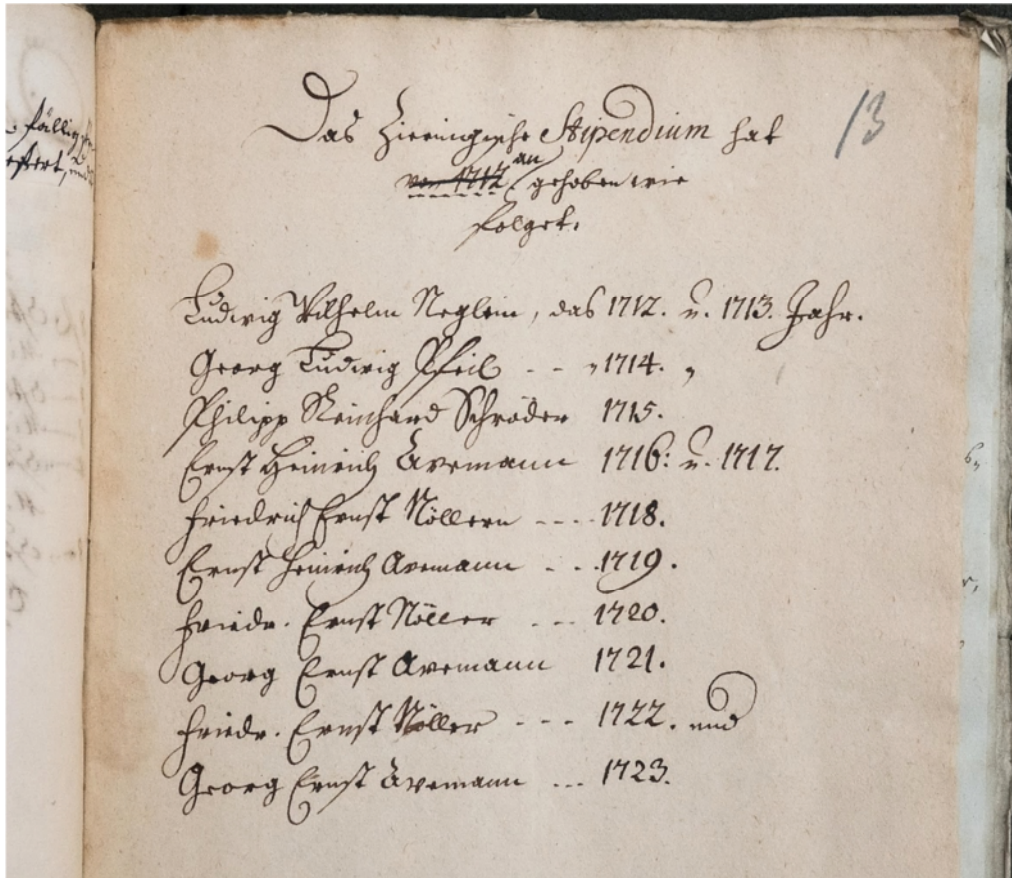 fällig
13
Das Zieringische Stipendium hat
von 1712 an gehoben wie
folget.
Ludwig Wilhelm Neglein, das 1712. u. 1713. Jahr.
Georg Ludwig Pfeil - - „ 1714. „
Philipp Reinhard Schröder 1715.
Ernst Heinrich Avemann 1716: u. 1717.
Friedrich Ernst Nöllern - - - - 1718.
Ernst Heinrich Avemann - - - 1719.
Friedr. Ernst Nöller - - - 1720.
Georg Ernst Avemann 1721.
Friedr. Ernst Nöller - - - 1722. und
Georg Ernst Avemann - - - 1723.